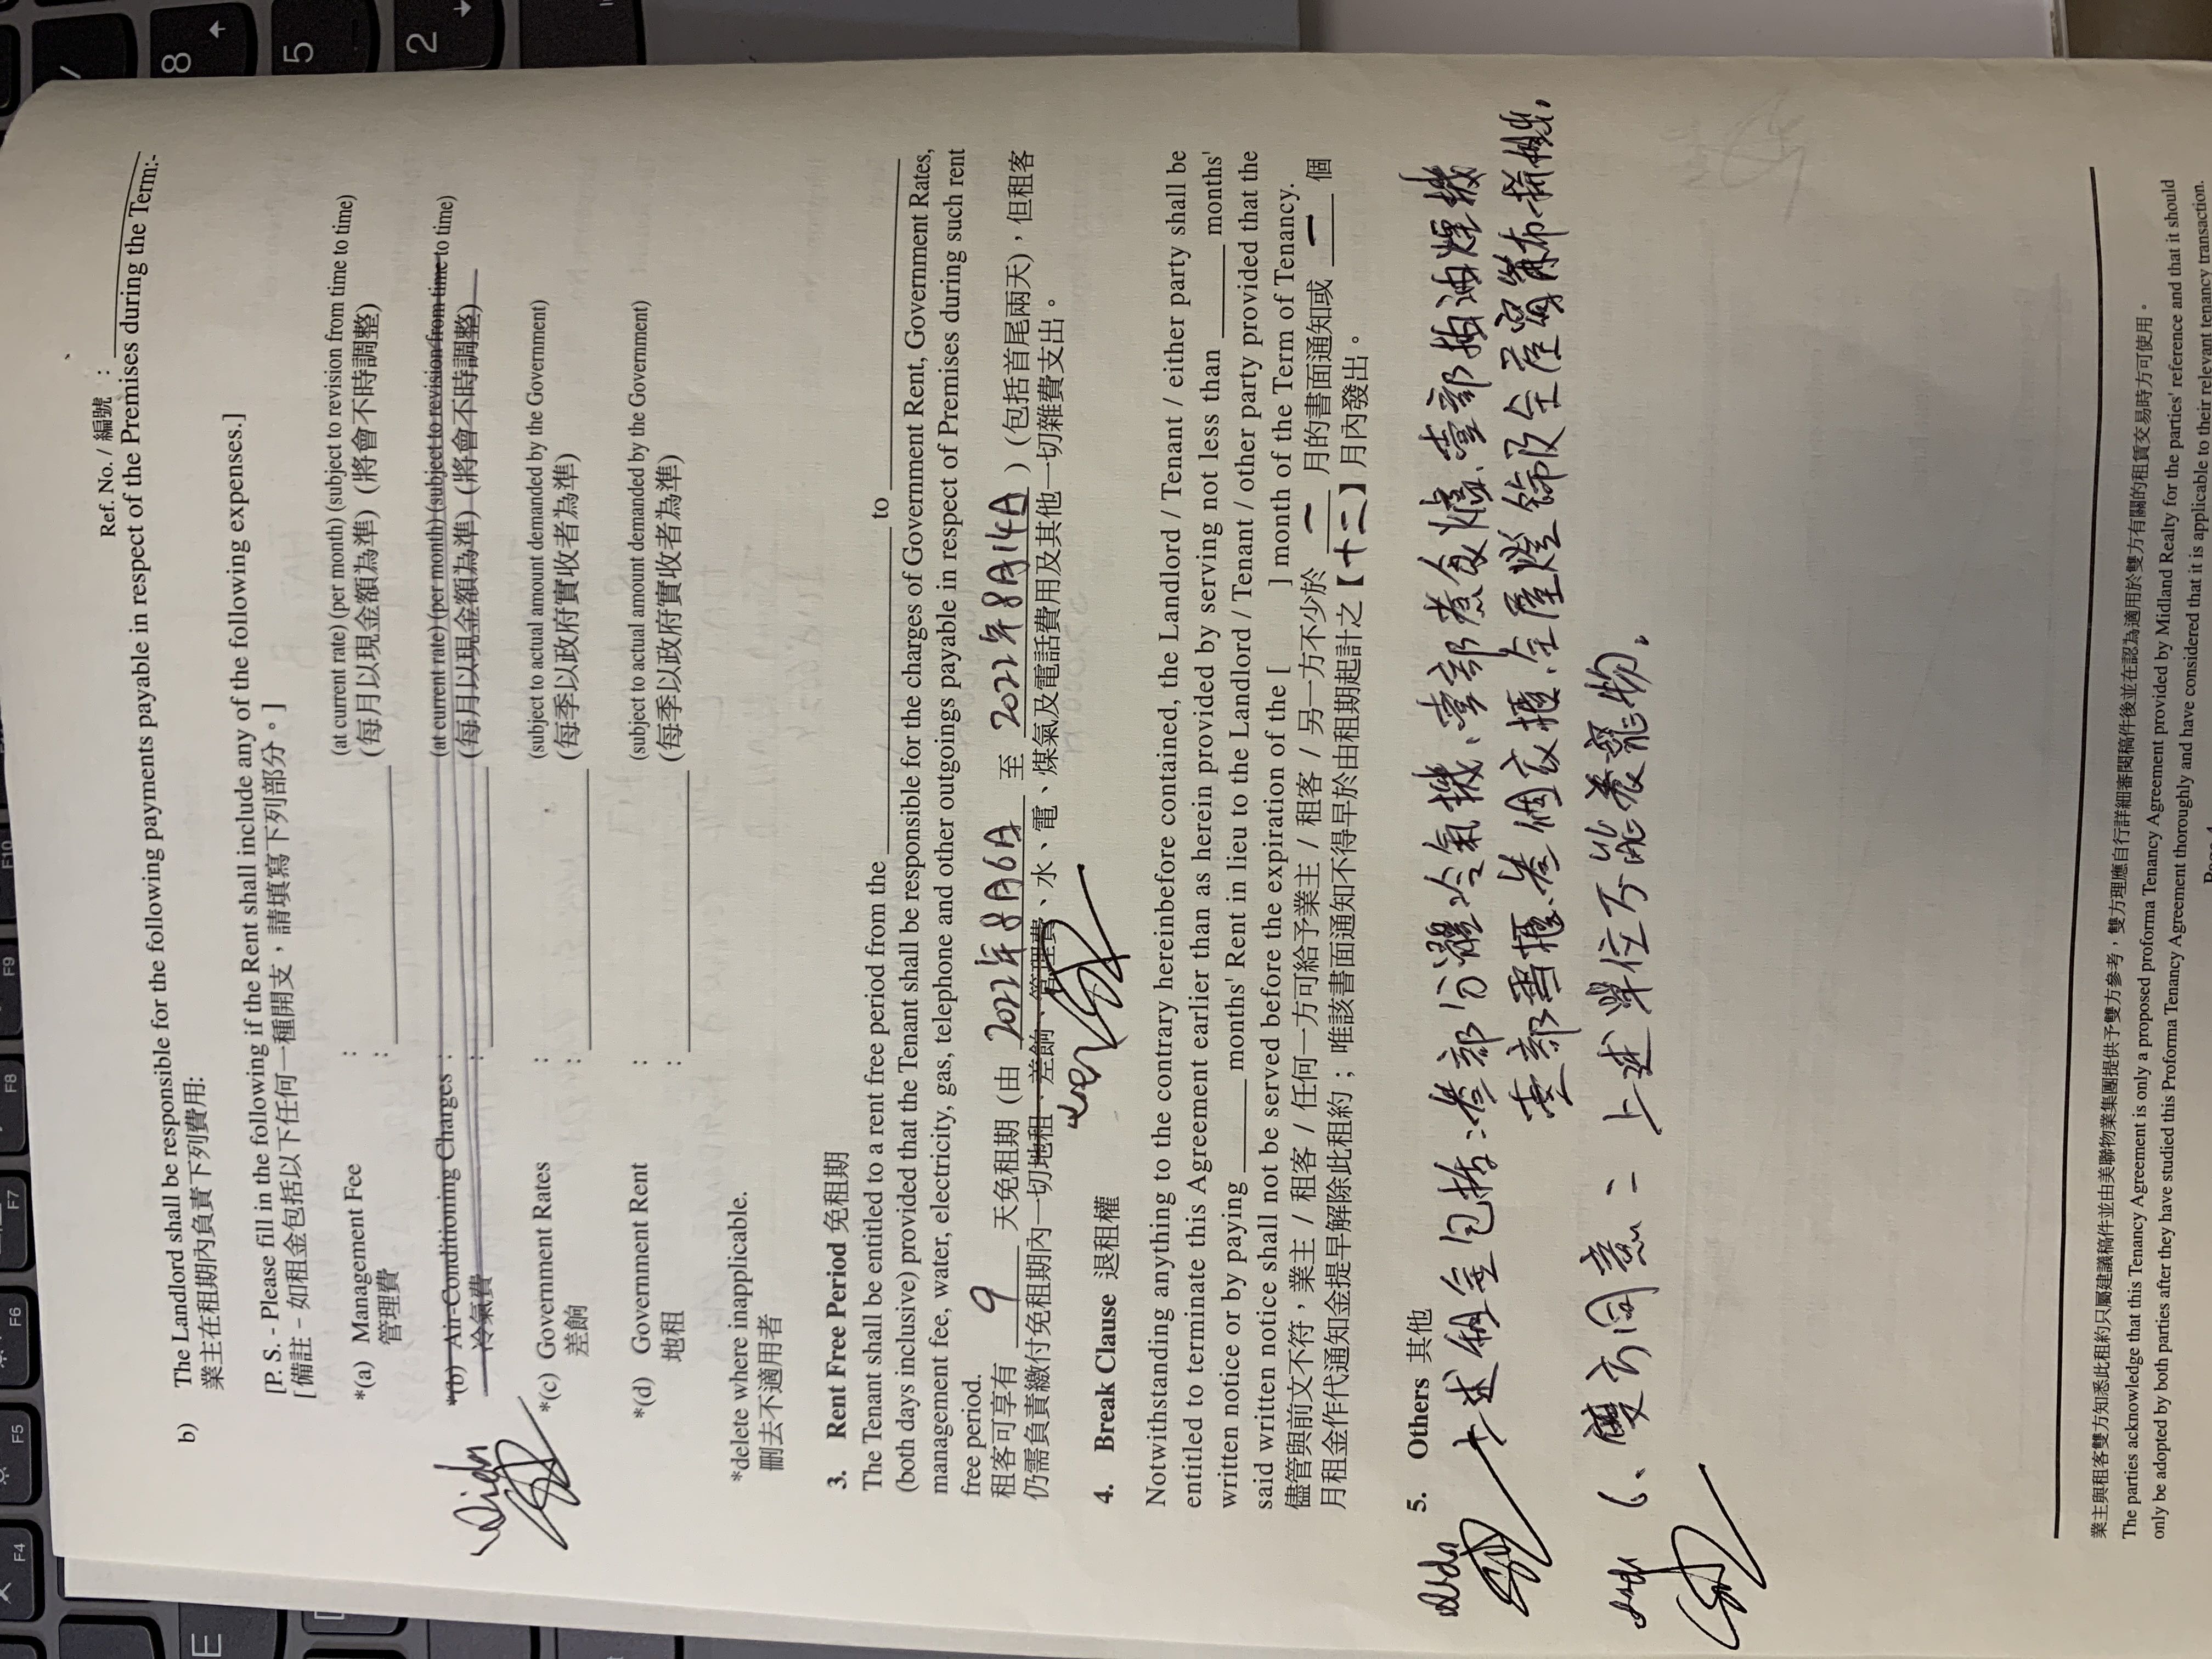 Ref. No. / 編號 :
b) The Landlord shall be responsible for the following payments payable in respect of the Premises during the Term:-
業主在租期內負責下列費用:
[P. S. - Please fill in the following if the Rent shall include any of the following expenses.]
[備註 - 如租金包括以下任何一種開支，請填寫下列部分。]
*(a) Management Fee : (at current rate) (per month) (subject to revision from time to time)
管理費 : (每月以現金額為準) (將會不時調整)
*(b) Air-Conditioning Charges : (at current rate) (per month) (subject to revision from time to time)
冷氣費 : (每月以現金額為準) (將會不時調整)
*(c) Government Rates : (subject to actual amount demanded by the Government)
差餉 : (每季以政府實收者為準)
*(d) Government Rent : (subject to actual amount demanded by the Government)
地租 : (每季以政府實收者為準)
*delete where inapplicable.
刪去不適用者
3. Rent Free Period 免租期
The Tenant shall be entitled to a rent free period from the to
(both days inclusive) provided that the Tenant shall be responsible for the charges of Government Rent, Government Rates,
management fee, water, electricity, gas, telephone and other outgoings payable in respect of Premises during such rent
free period.
租客可享有 9 天免租期 (由 2022年8月6日 至 2022年8月14日) (包括首尾兩天)，但租客
仍需負責繳付免租期內一切地租、差餉、管理費、水、電、煤氣及電話費用及其他一切雜費支出。
4. Break Clause 退租權
Notwithstanding anything to the contrary hereinbefore contained, the Landlord / Tenant / either party shall be
entitled to terminate this Agreement earlier than as herein provided by serving not less than months'
written notice or by paying months' Rent in lieu to the Landlord / Tenant / other party provided that the
said written notice shall not be served before the expiration of the [ ] month of the Term of Tenancy.
儘管與前文不符，業主 / 租客 / 任何一方可給予業主 / 租客 / 另一方不少於 一 月的書面通知或 一 個
月租金作代通知金提早解除此租約；唯該書面通知不得早於由租期起計之【十二】月內發出。
5. Others 其他
上述租金包括：叁部分體冷氣機、壹部煮食爐、壹部抽油煙機
壹部雪櫃、叁個衣櫃、全屋燈飾及全屋窗簾布捲
6、雙方同意：- 上述單位不能養寵物.
業主與租客雙方知悉此租約只屬建議稿件並由美聯物業集團提供予雙方參考，雙方理應自行詳細審閱稿件後並在認為適用於雙方有關的租賃交易時方可使用。
The parties acknowledge that this Tenancy Agreement is only a proposed proforma Tenancy Agreement provided by Midland Realty for the parties' reference and that it should
only be adopted by both parties after they have studied this Proforma Tenancy Agreement thoroughly and have considered that it is applicable to their relevant tenancy transaction.
8
5
2
F10
F9
F8
F7
F6
F5
F4
E